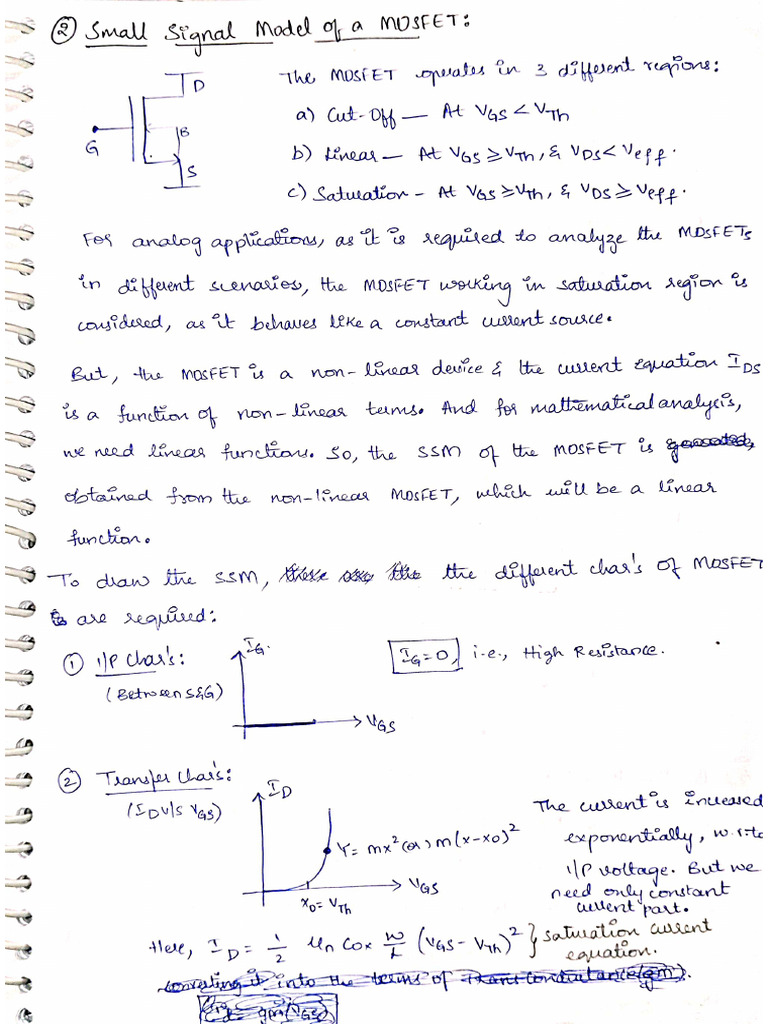 ② Small Signal Model of a MOSFET:
The MOSFET operates in 3 different regions:
D
a) Cut-Off — At VGS < VTh
G
B
b) Linear — At VGS ≥ VTh, & VDS < Veff.
S
c) Saturation - At VGS ≥ VTh, & VDS ≥ Veff.
For analog applications, as it is required to analyze the MOSFETs
in different scenarios, the MOSFET working in saturation region is
considered, as it behaves like a constant current source.
But, the MOSFET is a non-linear device & the current equation IDS
is a function of non-linear terms. And for mathematical analysis,
we need linear functions. So, the SSM of the MOSFET is
obtained from the non-linear MOSFET, which will be a linear
function.
To draw the SSM, the different char's of MOSFET
are required:
① I/P Char's:
(Between S&G)
IG
VGS
IG=0, i.e., High Resistance.
② Transfer Char's:
(ID v/s VGS)
ID
Y= mx² (or) m(x-x0)²
VGS
x0= VTh
The current is increased
exponentially, w.r.to
I/P voltage. But we
need only constant
current part.
Here, ID = 1/2 μn Cox W/L (VGS - VTh)² } saturation current
equation.
converting it into the terms of transconductance (gm).